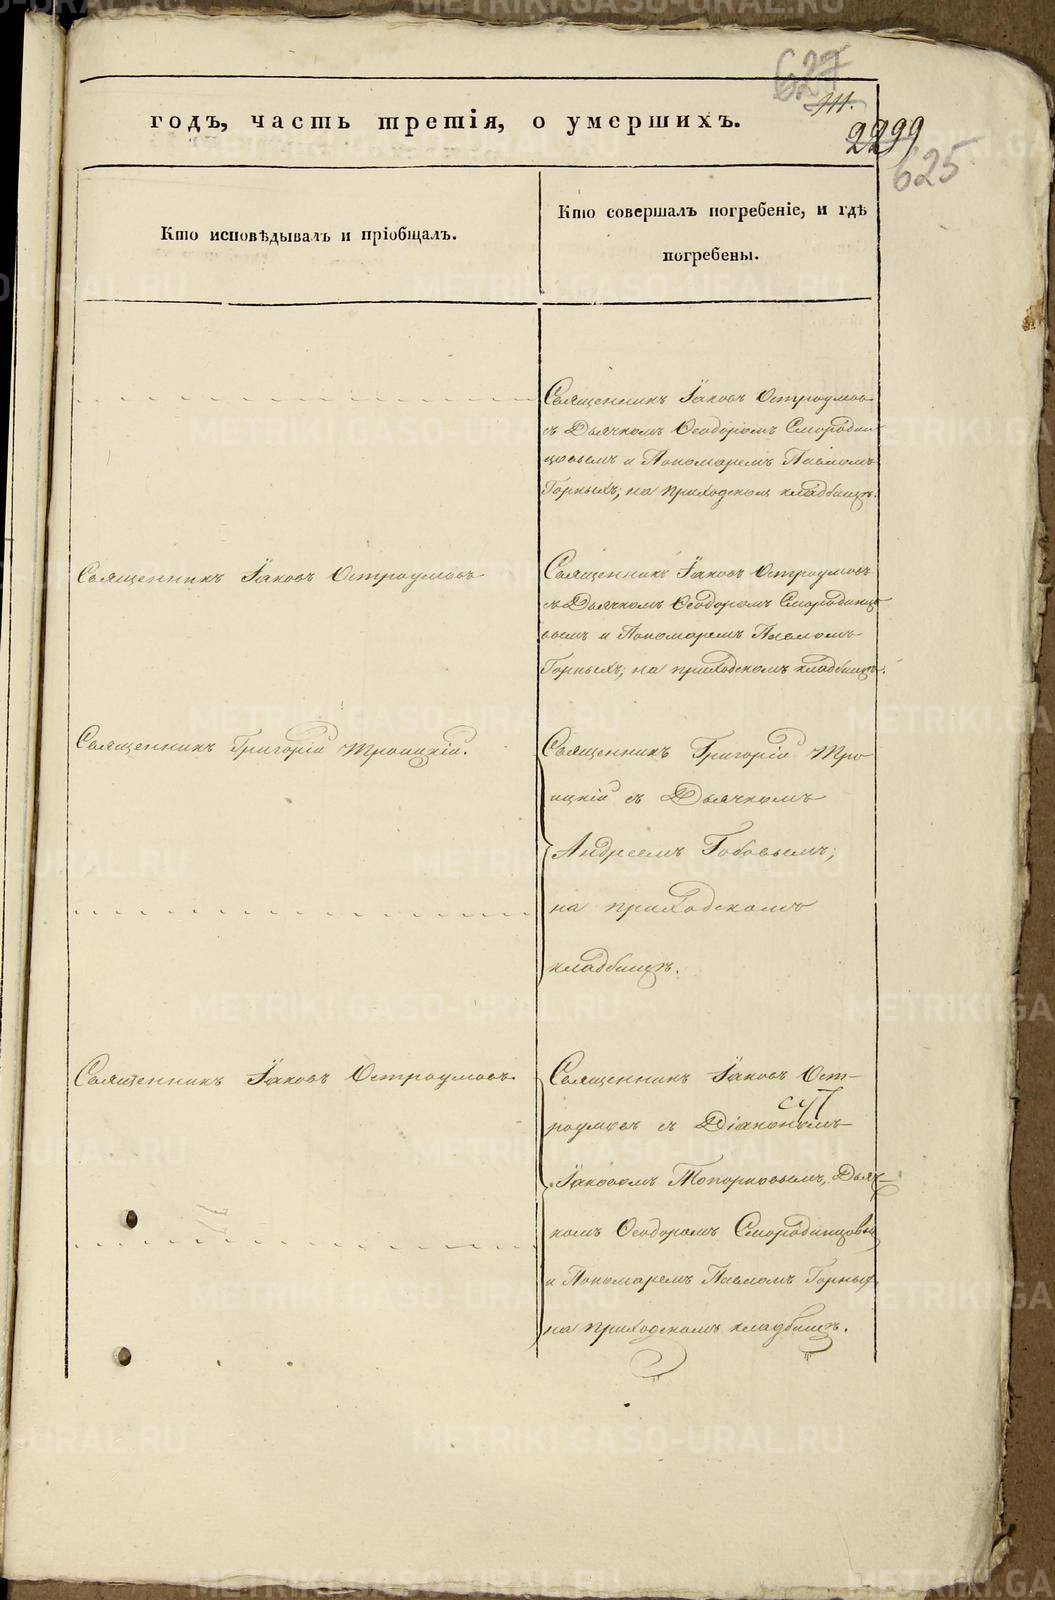 627
годъ, часть третія, о умершихъ.
2299
625
Кто исповѣдывалъ и пріобщалъ.
Кто совершалъ погребеніе, и гдѣ
погребены.
Священникъ Іаковъ Остроумовъ
съ Дьячкомъ Ѳеодоромъ Смородин
цовымъ и Пономаремъ Павломъ
Горныхъ; на приходском кладбищѣ.
Священникъ Іаковъ Остроумовъ
Священникъ Іаковъ Остроумовъ
съ Дьячкомъ Ѳеодоромъ Смородинцо
вымъ и Пономаремъ Павломъ
Горныхъ; на приходскомъ кладбищѣ.
Священникъ Григорій Троицкій.
Священникъ Григорій Тро
ицкій съ Дьячкомъ
Андреемъ Бобовымъ;
на приходскомъ
кладбищѣ.
Священникъ Іаковъ Остроумовъ.
Священникъ Іаковъ Ост-
роумовъ съ Діакономъ
Іаковомъ Топорковымъ, Дьяч-
комъ Ѳеодоромъ Смородинцовы
и Пономаремъ Павломъ Горных
на приходскомъ кладбищѣ.
METRIKI.GASO-URAL.RU